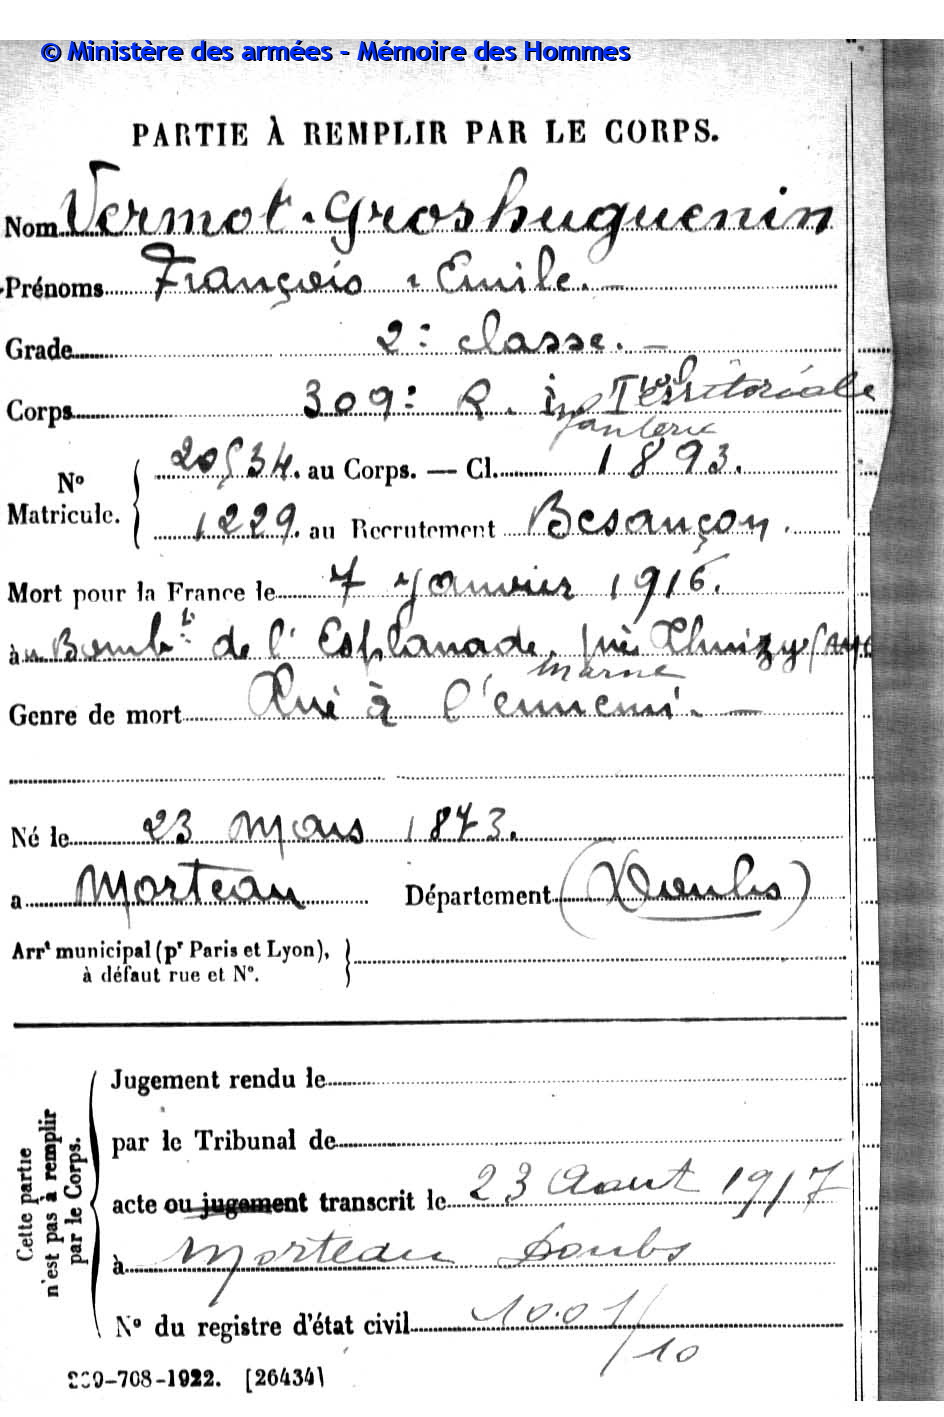 © Ministère des armées - Mémoire des Hommes
PARTIE À REMPLIR PAR LE CORPS.
Nom Vermot-Groshuguenin
Prénoms François Emile. —
Grade 2e classe. —
Corps 309e R. Territoriale
infanterie
No Matricule. 20534. au Corps. — Cl. 1893.
1229. au Recrutement Besançon.
Mort pour la France le 7 Janvier 1916.
à de l'Esplanade, près Thuizy
Marne
Genre de mort Tué à l'ennemi. —
Né le 23 Mars 1873.
a Morteau Département (Doubs)
Arrt municipal (pr Paris et Lyon),
à défaut rue et No.
Cette partie n'est pas à remplir par le Corps.
Jugement rendu le
par le Tribunal de
acte ou jugement transcrit le 23 Aout 1917
à Morteau Doubs
No du registre d'état civil 1001/10
-708-1922. [26434]